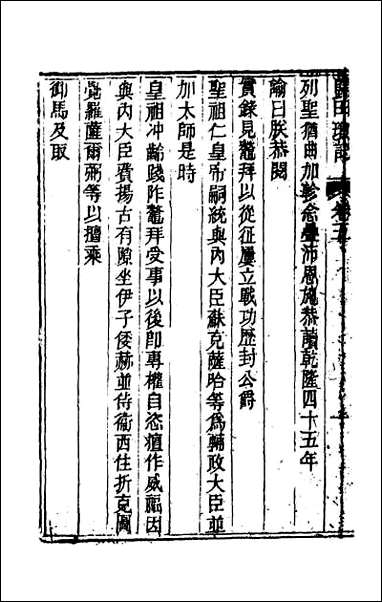 歸田瑣記 卷五
列聖猶曲加軫念疊沛恩施恭讀乾隆四十五年
諭曰朕恭閱
實錄見鼇拜以從征屢立戰功歷封公爵
聖祖仁皇帝嗣統與內大臣蘇克薩哈等爲輔政大臣並
加太師是時
皇祖冲齡踐阼鼇拜受事以後卽專權自恣擅作威福因
與內大臣費揚古有隙坐伊子倭赫並侍衛西住折克圖
覺羅薩爾弼等以擅乘
御馬及取